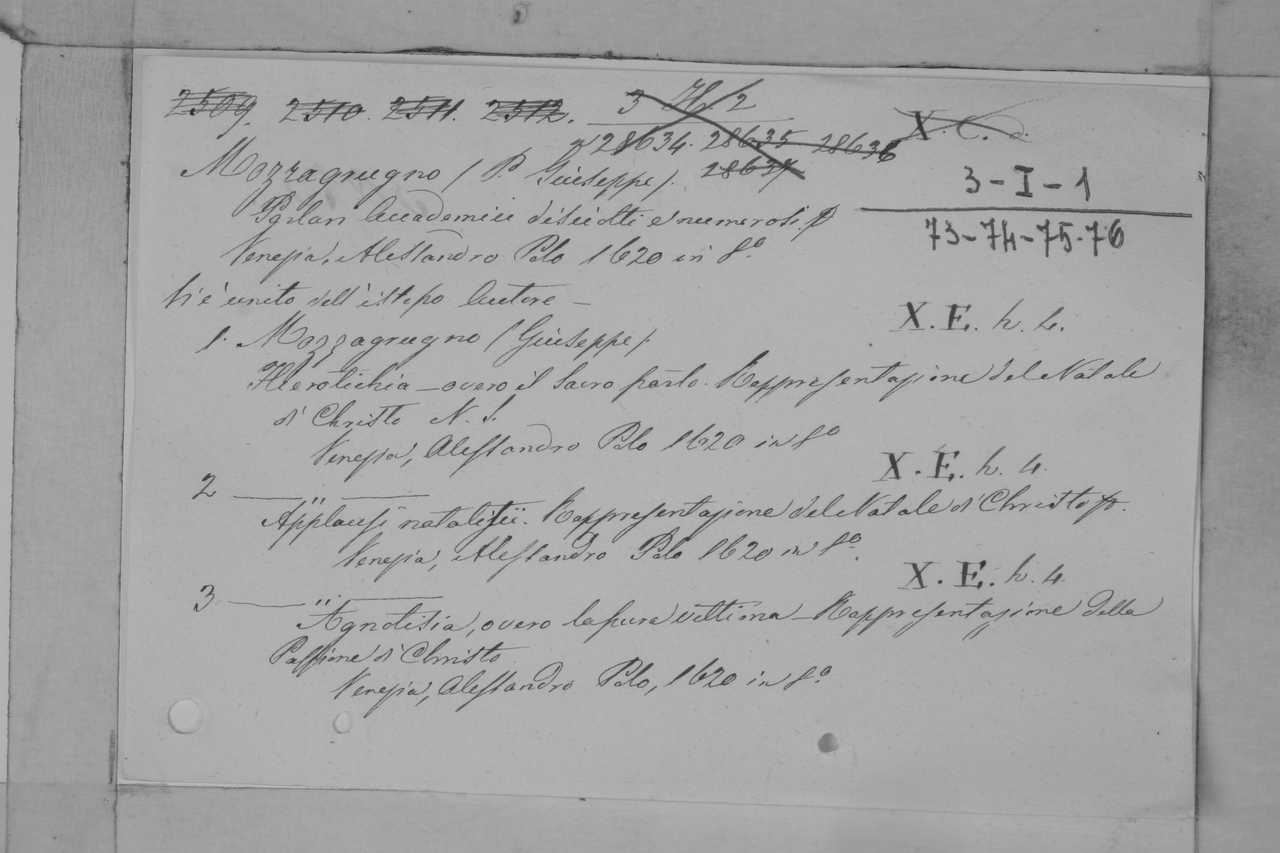 2509. 2510. 2511. 2512. 3 H 2 X. C. d.
28634. 28635 28636
28637
Mozzagrugno (P. Giuseppe).
3-I-1
Parlari Accademici disciolti e numerosi.
73-74-75-76
Venezia, Alessandro Polo 1620 in 8º
Vi è unito dell'istesso Autore –
X. E. h. 4.
1. Mozzagrugno (Giuseppe)
Hierotichia – overo il sacro parto. Rappresentazione del Natale
di Christo N. S.
Venezia, Alessandro Polo 1620 in 8º
X. E. h. 4.
2 — " —
Applausi natalizii. Rappresentazione del Natale di Christo
Venezia, Alessandro Polo 1620 in 8º
X. E. h. 4
3 — " —
Agnotisia, overo la pura vittima – Rappresentazione della
Passione di Christo
Venezia, Alessandro Polo, 1620 in 8º